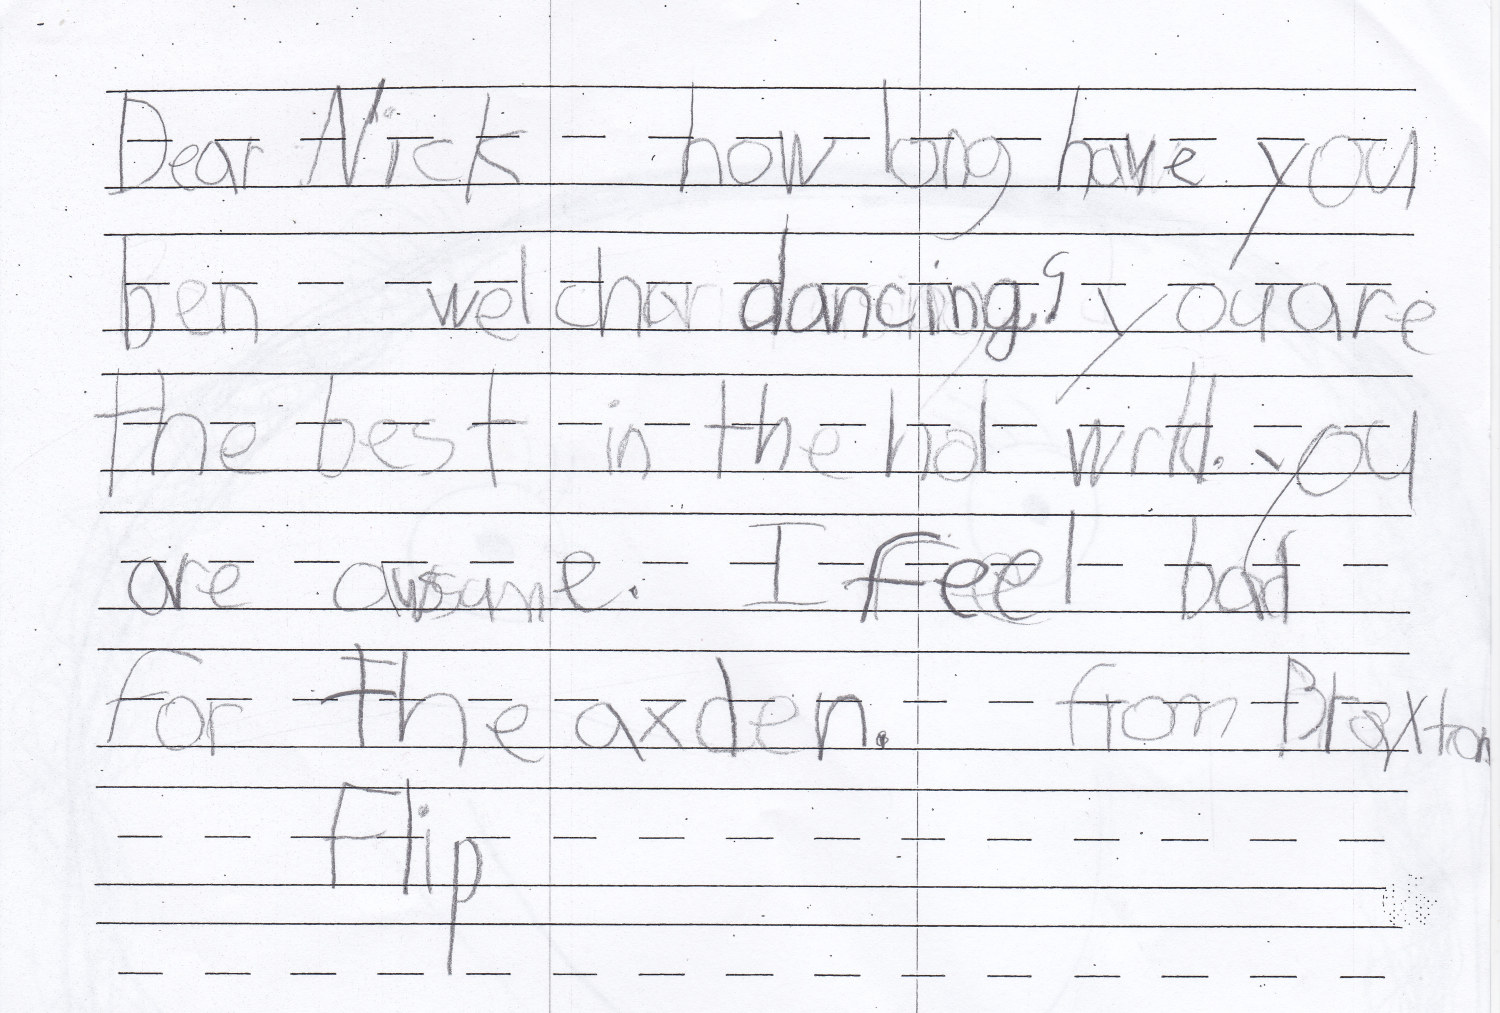 Dear Nick how long have you
ben welchar dancing? you are
the best in the hol wrld. you
are awsame. I feel bad
for the axden. from Braxton
Flip